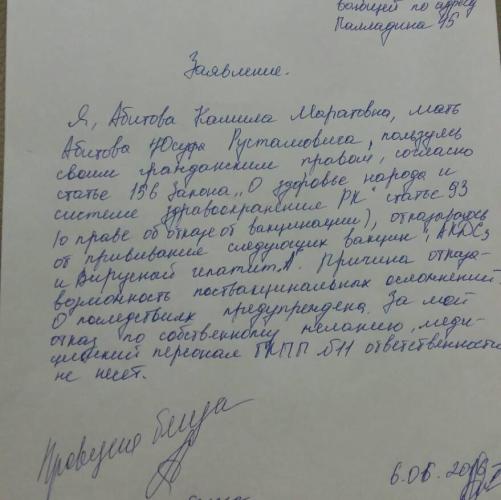 вающей по адресу
Палладина 95
Заявление.
Я, Абитова Камила Маратовна, мать
Абитова Юсуфа Рустамовича, пользуясь
своим гражданским правом, согласно
статье 156 Закона „О здоровье народа и
системе здравоохранение РК" статье 93
(о праве об отказе от вакцинации), отказываюсь
от прививание следующих вакцин: АКДС3
и Вирусной гепатит А. Причина отказа-
возможность поствакцинальных осложнений.
О последствиях предупреждена. За мой
отказ по собственному желанию, меди-
цинский персонал ГКПП №11 ответственности
не несет.
беседа
6.06.